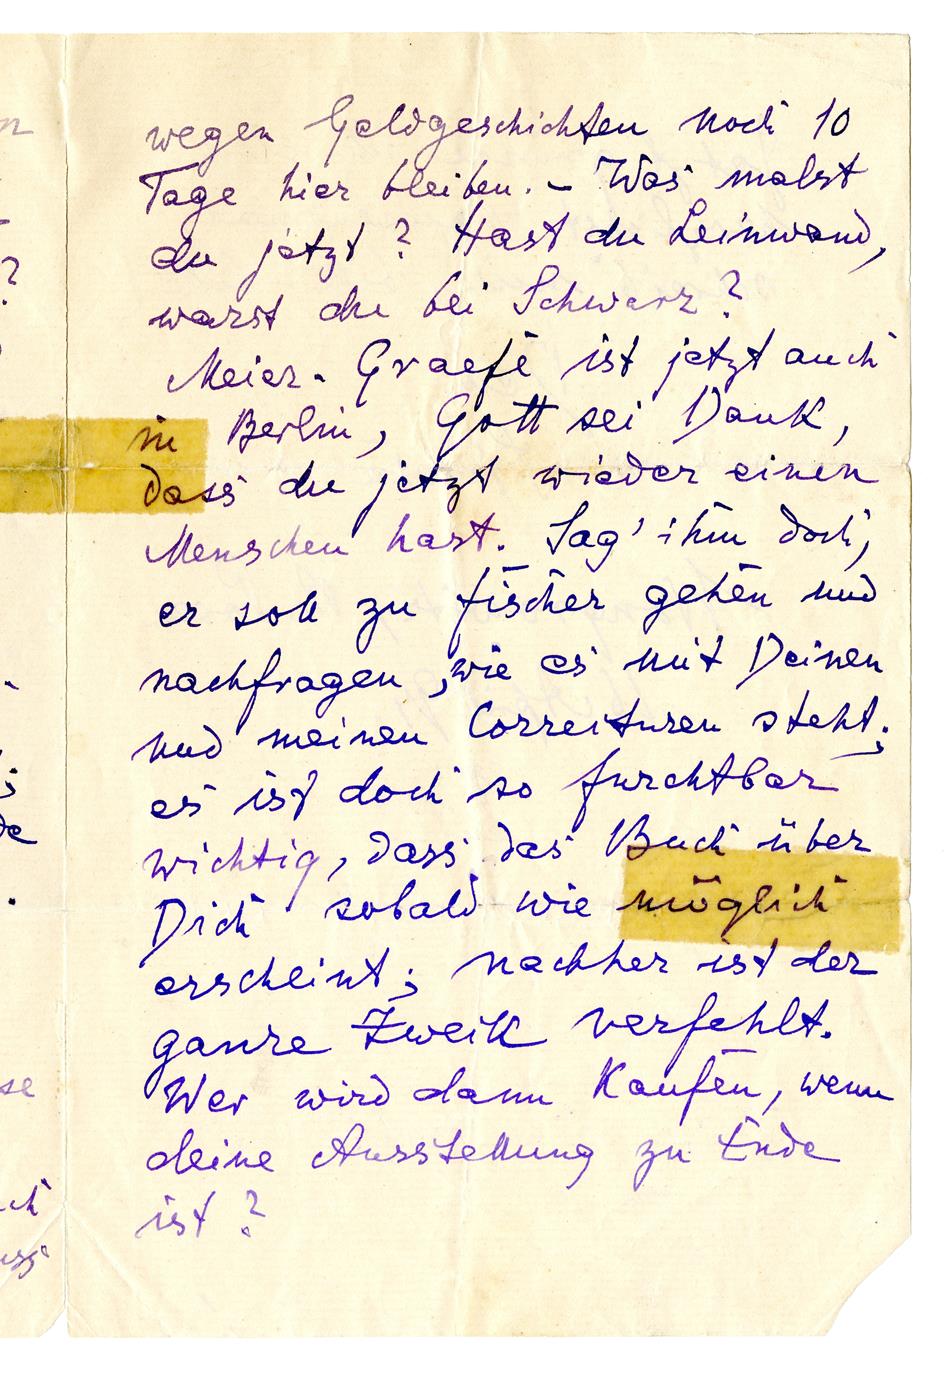 wegen Geldgeschichten noch 10
Tage hier bleiben. – Was malst
du jetzt? Hast du Leinwand,
warst du bei Schwarz?
Meier-Graefe ist jetzt auch
in Berlin, Gott sei Dank,
dass du jetzt wieder einen
Menschen hast. Sag' ihm doch,
er soll zu fischer gehen und
nachfragen, wie es mit Deinen
und meinen Correcturen steht;
es ist doch so furchtbar
wichtig, dass das Buch über
Dich sobald wie möglich
erscheint; nachher ist der
ganze Zweik verfehlt.
Wer wird dann Kaufen, wenn
deine Ausstellung zu Ende
ist?